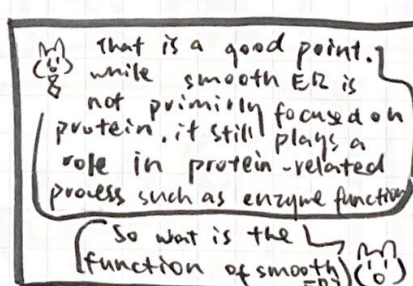 that is a good point.
while smooth ER is
not primirly focused on
protein, it still plays a
role in protein-related
process such as enzyme function
So wat is the
function of smooth
ER?